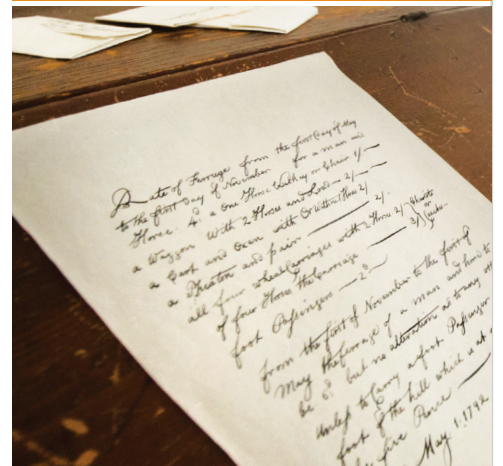 Rate of Ferriage from the first Day of May
to the first Day of November for a man and
Horse 4d a One Horse or Chair 1/
a Waggon With 2 Horses and Load 2/
a Cart and Oxen with Or Without Horse 2/
a Pheaton and pair 2/
all four wheel Carriages with 2 Horses 2/
of four Horses the Carriage 3/
foot Passengers 2d
from the first of November to the first of
May the ferriage of a man and horse to
be but no alteration as to any
Unless to carry a foot Passenger
foot of the hill which is at
five Pence
May 1, 1792